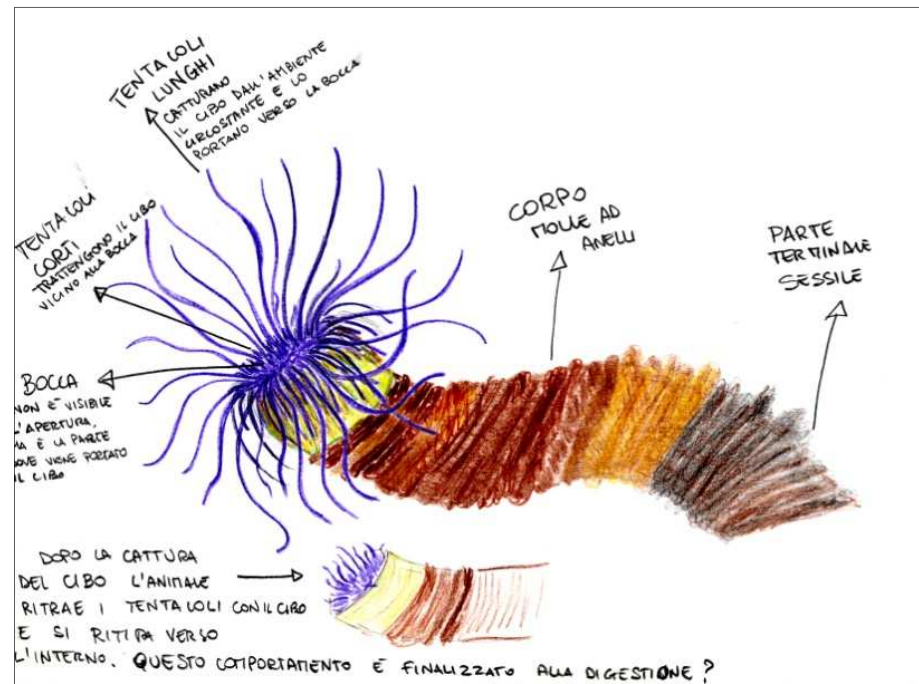 TENTACOLI
LUNGHI
CATTURANO
IL CIBO DALL'AMBIENTE
CIRCOSTANTE E LO
PORTANO VERSO LA BOCCA
TENTACOLI
CORTI
TRATTENGONO IL CIBO
VICINO ALLA BOCCA
BOCCA
NON È VISIBILE
L'APERTURA,
MA È LA PARTE
DOVE VIENE PORTATO
IL CIBO
CORPO
MOLLE AD
ANELLI
PARTE
TERMINALE
SESSILE
DOPO LA CATTURA
DEL CIBO L'ANIMALE
RITRAE I TENTACOLI CON IL CIBO
E SI RITIRA VERSO
L'INTERNO. QUESTO COMPORTAMENTO È FINALIZZATO ALLA DIGESTIONE?